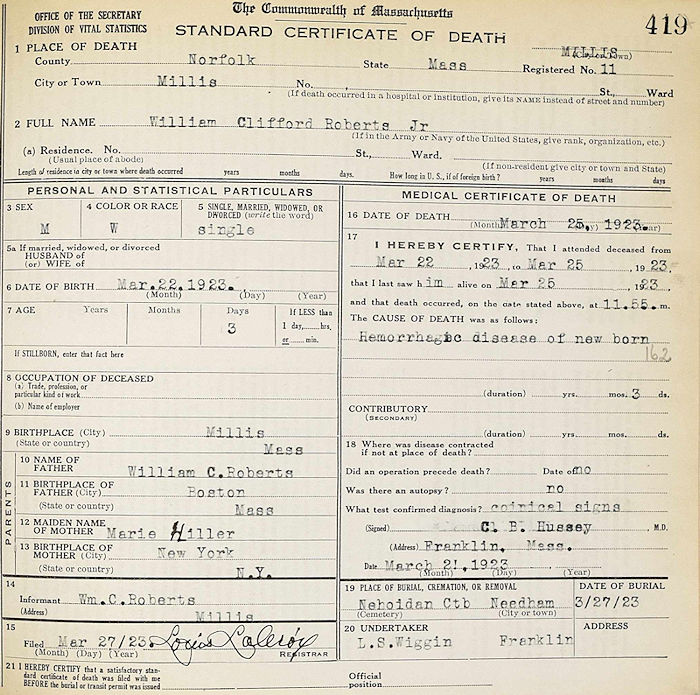 OFFICE OF THE SECRETARY
DIVISION OF VITAL STATISTICS
The Commonwealth of Massachusetts
STANDARD CERTIFICATE OF DEATH
419
1 PLACE OF DEATH
MILLIS
(City or Town)
County Norfolk State Mass Registered No. 11
City or Town Millis No. St., Ward
(If death occurred in a hospital or institution, give its NAME instead of street and number)
2 FULL NAME William Clifford Roberts Jr
(If in the Army or Navy of the United States, give rank, organization, etc.)
(a) Residence. No. St., Ward.
(Usual place of abode) (If non-resident give city or town and State)
Length of residence in city or town where death occurred years months days. How long in U. S., if of foreign birth? years months days
PERSONAL AND STATISTICAL PARTICULARS
3 SEX 4 COLOR OR RACE 5 SINGLE, MARRIED, WIDOWED, OR
DIVORCED (write the word)
M W single
5a If married, widowed, or divorced
HUSBAND of
(or) WIFE of
6 DATE OF BIRTH Mar.22.1923.
(Month) (Day) (Year)
7 AGE Years Months Days If LESS than
3 1 day,......hrs.
or......min.
If STILLBORN, enter that fact here
8 OCCUPATION OF DECEASED
(a) Trade, profession, or
particular kind of work
(b) Name of employer
9 BIRTHPLACE (City) Millis
(State or country) Mass
PARENTS
10 NAME OF
FATHER William C.Roberts
11 BIRTHPLACE OF
FATHER (City) Boston
(State or country) Mass
12 MAIDEN NAME
OF MOTHER Marie Hiller
13 BIRTHPLACE OF
MOTHER (City) New York
(State or country) N.Y.
14
Informant Wm.C.Roberts
(Address) Millis
15
Filed Mar 27/23
(Month) (Day) (Year) REGISTRAR
MEDICAL CERTIFICATE OF DEATH
16 DATE OF DEATH March 25, 1923.
(Month) (Day) (Year)
17
I HEREBY CERTIFY, That I attended deceased from
Mar 22, 1923, to Mar 25, 1923,
that I last saw him alive on Mar 25, 1923.
and that death occurred, on the date stated above, at 11.55. m.
The CAUSE OF DEATH was as follows:
Hemorrhagic disease of new born
162
(duration) yrs. mos. 3 ds.
CONTRIBUTORY
(SECONDARY)
(duration) yrs. mos. ds.
18 Where was disease contracted
if not at place of death?
Did an operation precede death? Date of no
Was there an autopsy? no
What test confirmed diagnosis? coinical signs
(Signed) C. B. Hussey M.D.
(Address) Franklin, Mass.
Date March 2!,1923
(Month) (Day) (Year)
19 PLACE OF BURIAL, CREMATION, OR REMOVAL DATE OF BURIAL
Nehoidan Ctb Needham 3/27/23
(Cemetery) (City or town)
20 UNDERTAKER ADDRESS
L.S.Wiggin Franklin
21 I HEREBY CERTIFY that a satisfactory stan-
dard certificate of death was filed with me
BEFORE the burial or transit permit was issued
Official
position